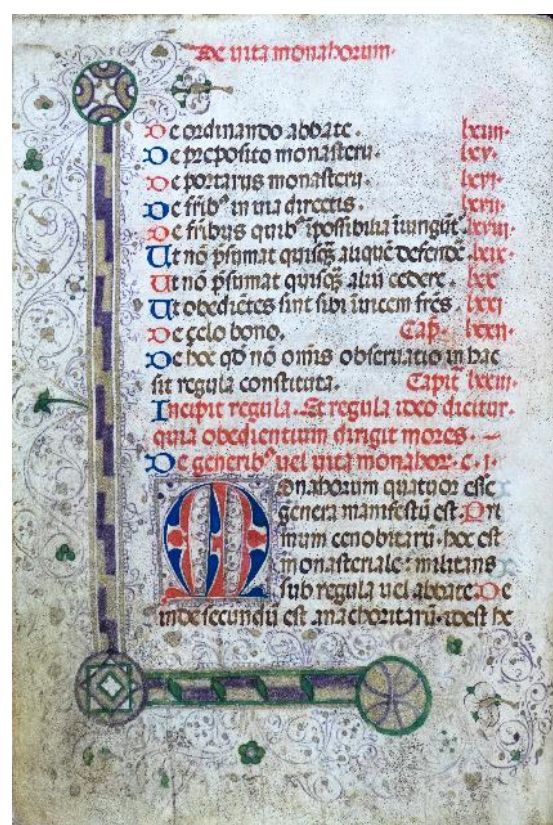 De uita monahorum.
De ordinando abbate. lxiiii.
De preposito monasterii. lxv.
De portariis monasterii. lxvi.
De frib⁹ in uia directis. lxvii.
De fribus quib⁹ īpossibilia iniungūt̄ lxviii.
Ut nō p̄sumat quisq̄ʒ aliquē defendē. lxix.
Ut nō p̄sumat quisq̄ʒ alium cedere. lxx
Ut obediētes sint sibi īuicem frēs. lxxi
De çelo bono. Cap̄. lxxii.
De hoc qd̄ nō om̄is obseruatio in hac
sit regula constituta. Capit̄ lxxiii.
Incipit regula. Et regula ideo dicitur.
quia obedientium dirigit mores.
De generib⁹ uel uita monahor. c. i.
Monahorum quatuor esse
genera manifestū est. Pri
mum cenobitarū. hoc est
monasteriale: militans
sub regula uel abbate. De
inde secundū est anachoritarū. idest he